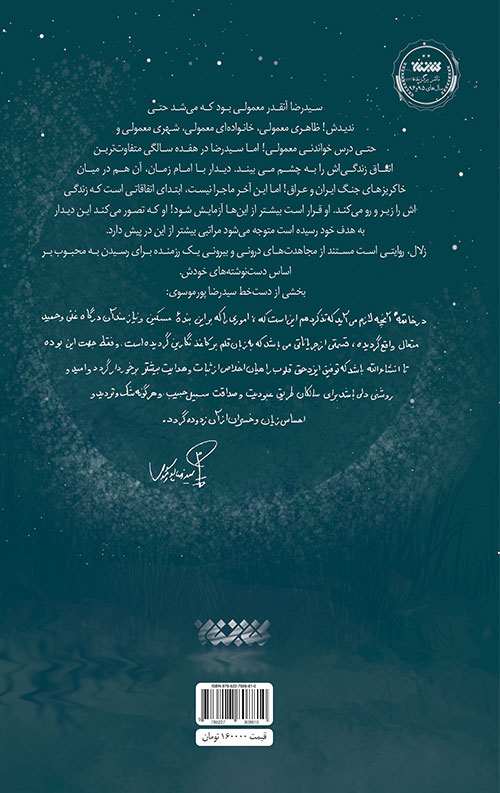 ناشر برگزیده
سال‌های ۹۵ و ۹۶
سیدرضا آنقدر معمولی بود که می‌شد حتی
ندیدش! ظاهری معمولی، خانواده‌ای معمولی، شهری معمولی و
حتی درس خواندنی معمولی! اما سیدرضا در هفده سالگی متفاوت‌ترین
اتفاق زندگی‌اش را به چشم می بیند. دیدار با امام زمان، آن هم در میان
خاکریزهای جنگ ایران و عراق! اما این آخر ماجرا نیست، ابتدای اتفاقاتی است که زندگی
‌اش را زیر و رو می‌کند. او قرار است بیشتر از این‌ها آزمایش شود! او که تصور می‌کند این دیدار
به هدف خود رسیده است متوجه می‌شود مراتبی بیشتر از این در پیش دارد.
زلال، روایتی است مستند از مجاهدت‌های درونی و بیرونی یک رزمنده برای رسیدن به محبوب بر
اساس دست‌نوشته‌های خودش.
بخشی از دست‌خط سیدرضا پورموسوی:
در خاتمه آنچه لازم می‌آید که تذکر دهم این است که، اموری را که بر این بندهٔ مسکین و نیازمند آن درگاه غنی و حمید
متعال واقع گردیده، قسمتی از جریاناتی می باشد که به زبان قلم بر کاغذ نگارین گردیده است. و فقط جهت این بوده
تا انشاءالله باشد که توفیق ایزد حق قلوب را هیان اخلاص از ثبات و هدایت بیشتر برخوردار گردد و امید و
روشنی دلی باشد برای سالکان طریق عبودیت و صداقت سبیل حبیب و هرگونه شک و تردید و
احساس زیان و خسران از آن زدوده گردد.
ISBN: 978-622-7808-81-0
9 786227 808810
قیمت ۱۶۰۰۰۰ تومان